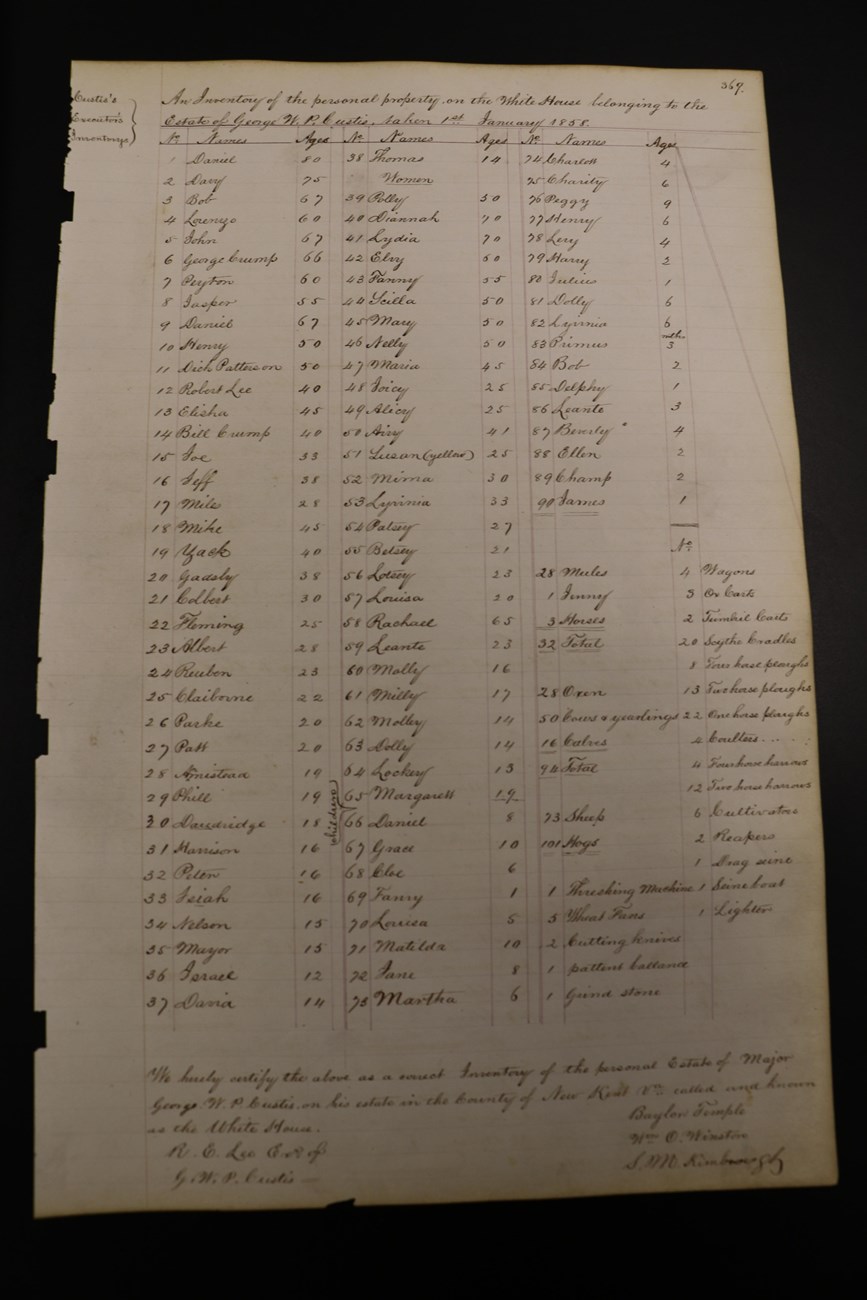 367.
Custis's
Executor's
Inventorys
An Inventory of the personal property on the White House belonging to the
Estate of George W. P. Custis, taken 1st January 1858.
No Names Ages No Names Ages No Names Ages
1 Daniel 80 38 Thomas 14 74 Charlott 4
2 Davy 75 Women 75 Charity 6
3 Bob 67 39 Polly 50 76 Peggy 9
4 Lorenzo 60 40 Diannah 70 77 Henry 6
5 John 67 41 Lydia 70 78 Levy 4
6 George Crump 66 42 Elvy 60 79 Harry 2
7 Peyton 60 43 Fanny 55 80 Julius 1
8 Jasper 55 44 Scilla 50 81 Dolly 6
9 Daniel 67 45 Mary 50 82 Lyvinia 6
10 Henry 50 46 Nelly 50 83 Primus mths 3
11 Dick Patterson 50 47 Maria 45 84 Bob 2
12 Robert Lee 40 48 Joicy 25 85 Delphy 1
13 Elisha 45 49 Alicy 25 86 Leante 3
14 Bill Crump 40 50 Airy 41 87 Beverly 4
15 Joe 33 51 Susan (yellow) 25 88 Ellen 2
16 Jeff 38 52 Mima 30 89 Champ 2
17 Mile 28 53 Lyvinia 33 90 James 1
18 Mike 45 54 Patsey 27
19 Zack 40 55 Betsey 21 No
20 Gadsby 38 56 Lotsey 23 28 Mules 4 Wagons
21 Colbert 30 57 Louisa 20 1 Jenny 3 Ox Carts
22 Fleming 25 58 Rachael 65 3 Horses 2 Tumbril Carts
23 Albert 28 59 Leante 23 32 Total 20 Scythe Cradles
24 Reuben 23 60 Molly 16 8 Four horse ploughs
25 Claiborne 22 61 Milly 17 28 Oxen 13 Two horse ploughs
26 Parke 20 62 Molley 14 50 Cows & yearlings 22 One horse ploughs
27 Patt 20 63 Dolly 14 16 Calves 4 Coulters
28 Armistead 19 64 Lockey 13 94 Total 4 Four horse harrows
29 Phill 19 children 65 Margarett 19 12 Two horse harrows
30 Dandridge 18 66 Daniel 8 73 Sheep 6 Cultivators
31 Harrison 16 67 Grace 10 101 Hogs 2 Reapers
32 Peter 16 68 Cloe 6 1 Drag seine
33 Isiah 16 69 Fanny 1 1 Threshing Machine 1 Seine boat
34 Nelson 15 70 Louisa 5 3 Wheat Fans 1 Lighter
35 Mayor 15 71 Matilda 10 2 Cutting knives
36 Israel 12 72 Jane 8 1 pattent ballance
37 David 14 73 Martha 6 1 Grind stone
We hereby certify the above as a correct Inventory of the personal Estate of Major
George W. P. Custis, on his estate in the County of New Kent Va. called and known
as the White House.
Baylor Temple
R. E. Lee Exr of
Wm O. Winston
G. W. P. Custis
S. M. Kimbrough